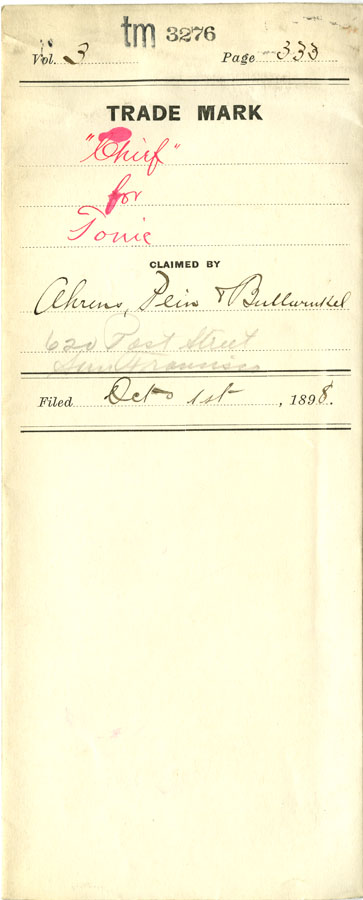 tm 3276
Vol. 3 Page 333
TRADE MARK
"Chief"
for
Tonic
CLAIMED BY
Ahrens, Pein & Bullwinkel
620 Post Street
San Francisco
Filed Oct 1st, 1898.